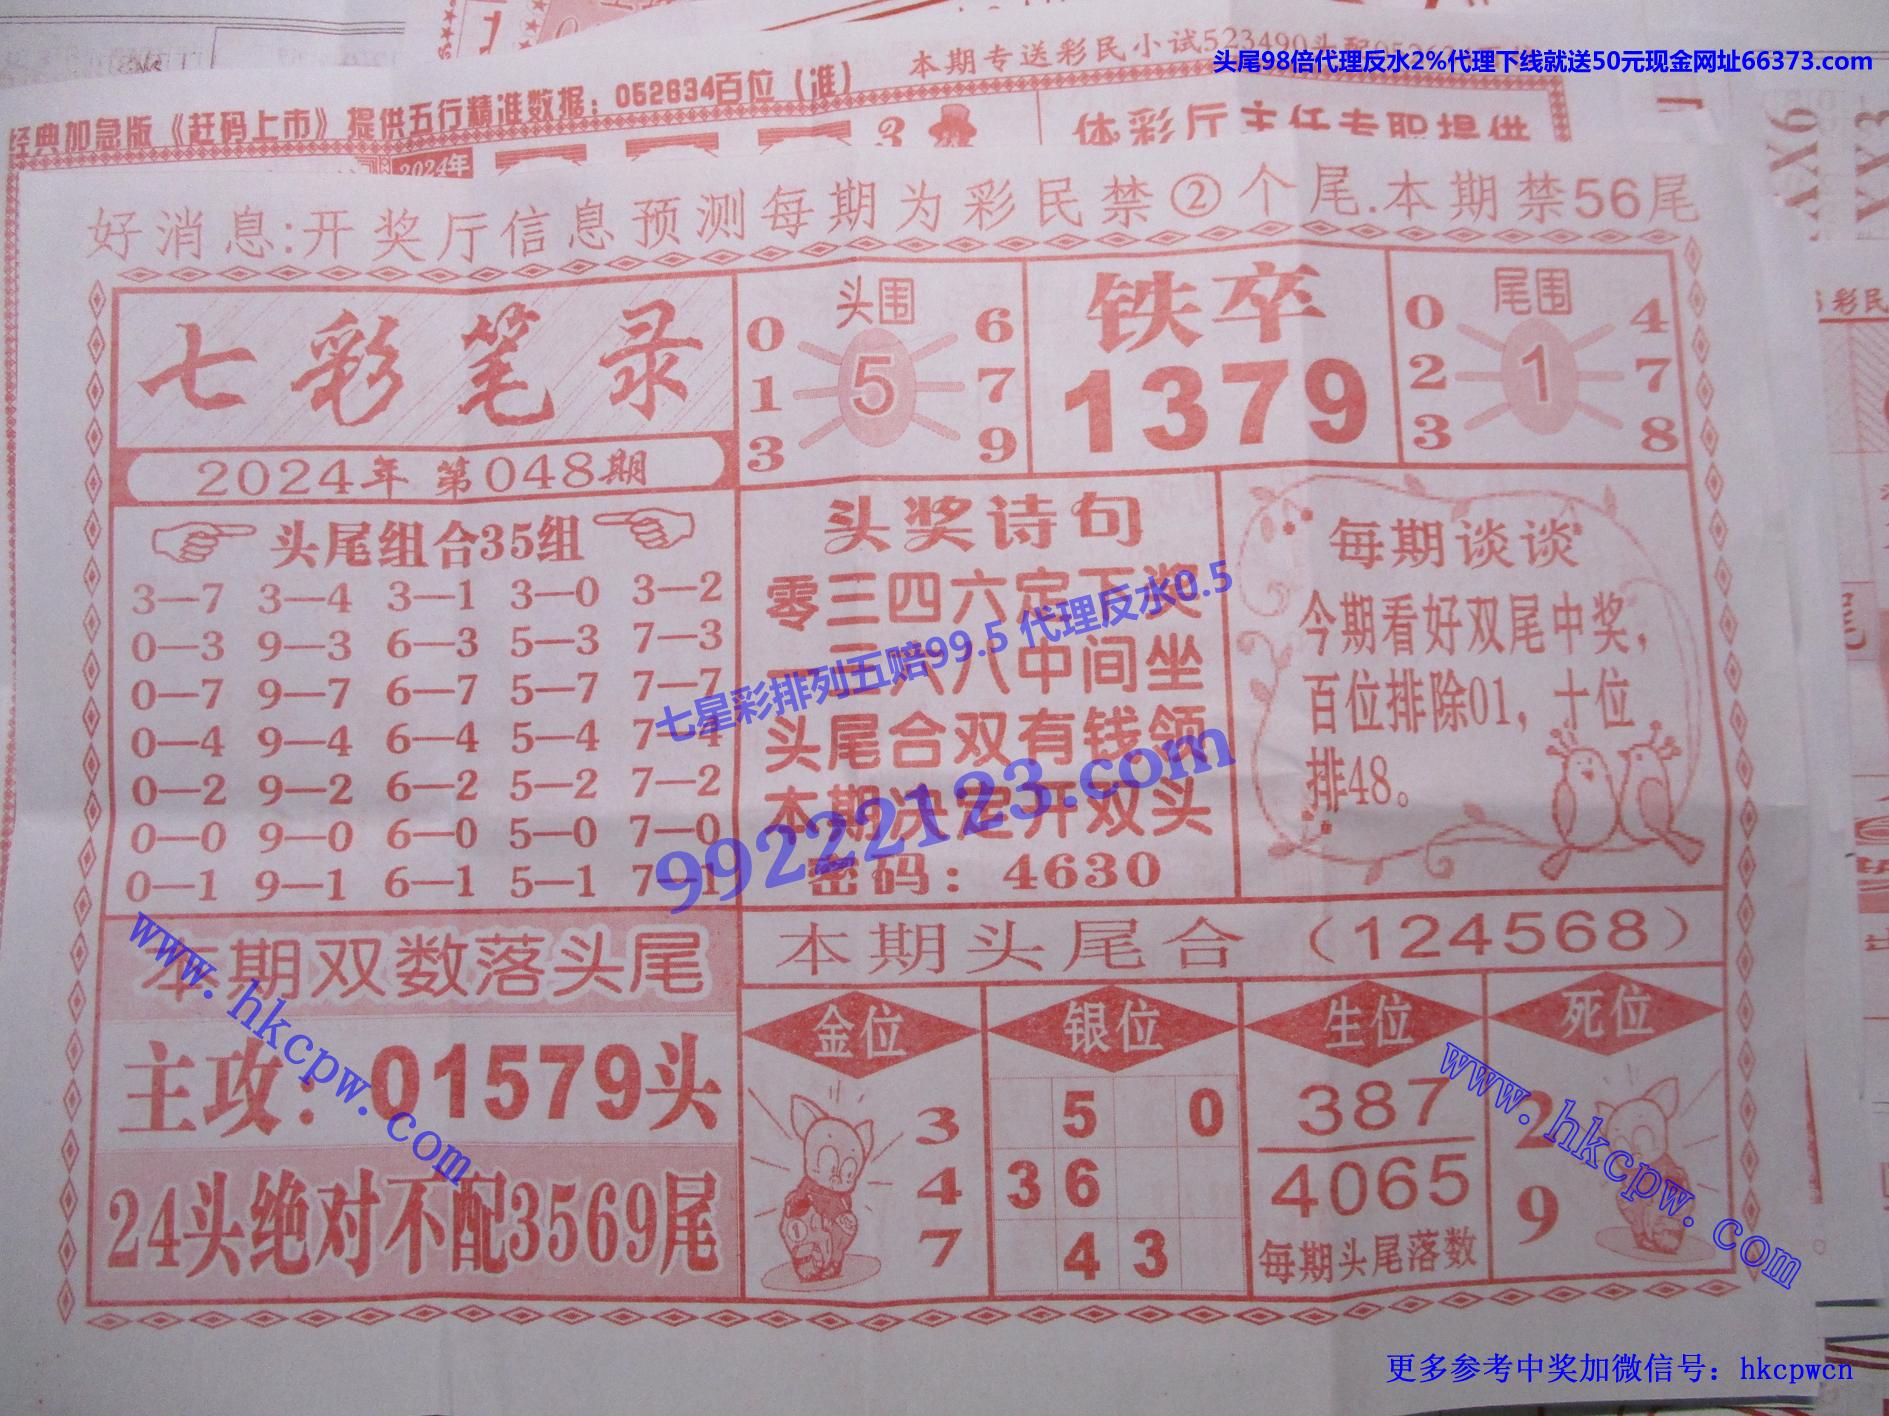 头尾98倍代理反水2%代理下线就送50元现金网址66373.com
本期专送彩民小试523490头配
经典加急版《赶码上市》提供五行精准数据：052634百位（准）
2024年
3
体彩厅主任专职提供
好消息:开奖厅信息预测每期为彩民禁②个尾.本期禁56尾
七彩笔录
2024年 第048期
头尾组合35组
3—7 3—4 3—1 3—0 3—2
0—3 9—3 6—3 5—3 7—3
0—7 9—7 6—7 5—7 7—7
0—4 9—4 6—4 5—4 7—4
0—2 9—2 6—2 5—2 7—2
0—0 9—0 6—0 5—0 7—0
0—1 9—1 6—1 5—1 7—1
本期双数落头尾
主攻：01579头
24头绝对不配3569尾
头围
0 6
1 5 7
3 9
铁卒
1379
尾围
0 4
2 1 7
3 8
头奖诗句
零三四六定下奖
三六八中间坐
头尾合双有钱领
本期决定开双头
密码：4630
每期谈谈
今期看好双尾中奖，
百位排除01，十位
排48。
本期头尾合（124568）
金位
3
4
7
银位
5 0
3 6
4 3
生位
387
4065
每期头尾落数
死位
2
9
七星彩排列五赔99.5 代理反水0.5
99222123.com
www.hkcpw.com
www.hkcpw.com
更多参考中奖加微信号：hkcpwcn